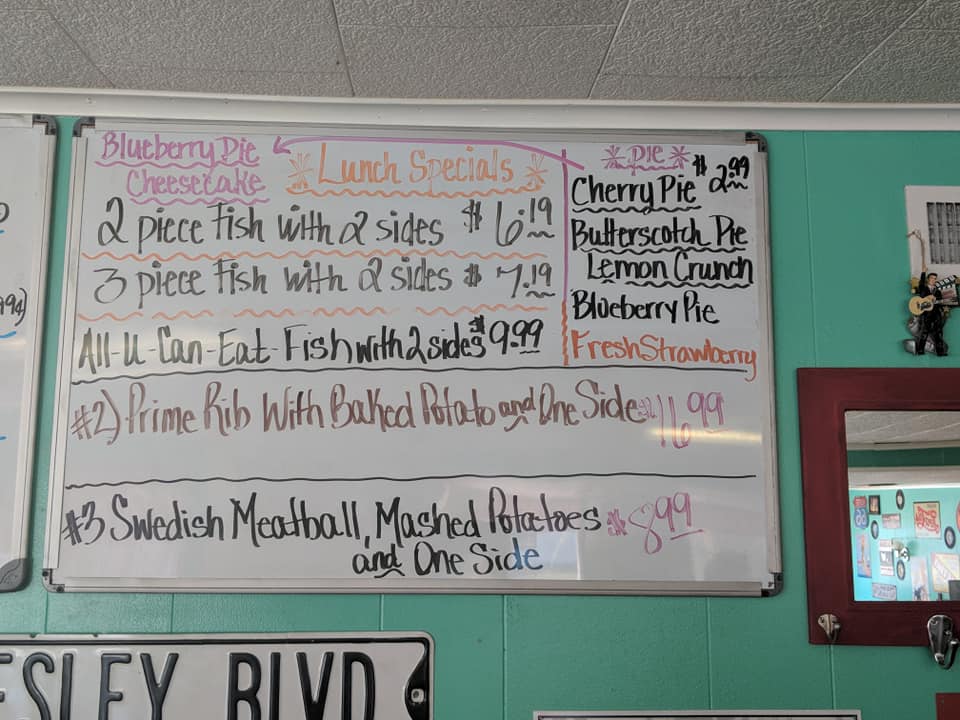 Blueberry Pie
Cheesecake
Lunch Specials
2 piece Fish with 2 sides $6.19
3 piece Fish with 2 sides $7.19
All-U-Can-Eat-Fish with 2 sides $9.99
Pie $2.99
Cherry Pie
Butterscotch Pie
Lemon Crunch
Blueberry Pie
Fresh Strawberry
#2) Prime Rib With Baked Potato and One Side $16.99
#3 Swedish Meatball, Mashed Potatoes $8.99
and One Side
ESLEY BLVD